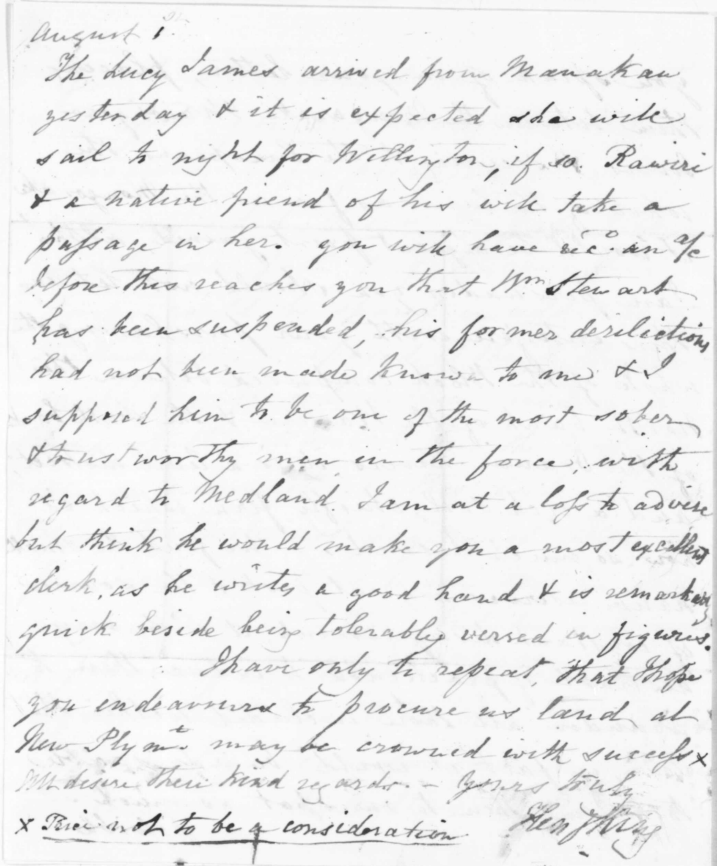 August 1st
The Lucy James arrived from Manakau
yesterday & it is expected she will
sail to night for Wellington, if so Rawiri
& a native friend of his will take a
passage in her. you will have recd an a/c
before this reaches you that Wm Stewart
has been suspended, his former derilictions
had not been made known to me & I
supposed him to be one of the most sober
& trustworthy men in the force, with
regard to Medland. I am at a loss to advise
but think he would make you a most excellent
clerk, as he writes a good hand & is remarkably
quick beside being tolerably versed in figures.
I have only to repeat, that I hope
you endeavours to procure us land at
New Plymth may be crowned with success x
All desire their kind regards - Yours truly
Hen King
x Price not to be a consideration